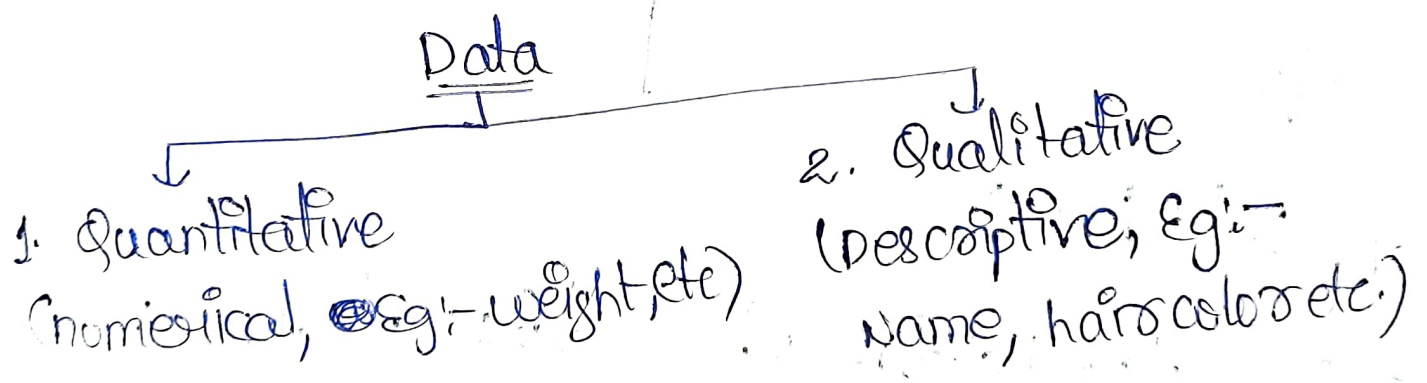 Data
1. Quantitative
(numerical, Eg:- weight, etc)
2. Qualitative
(Descriptive, Eg:-
Name, hair color etc.)